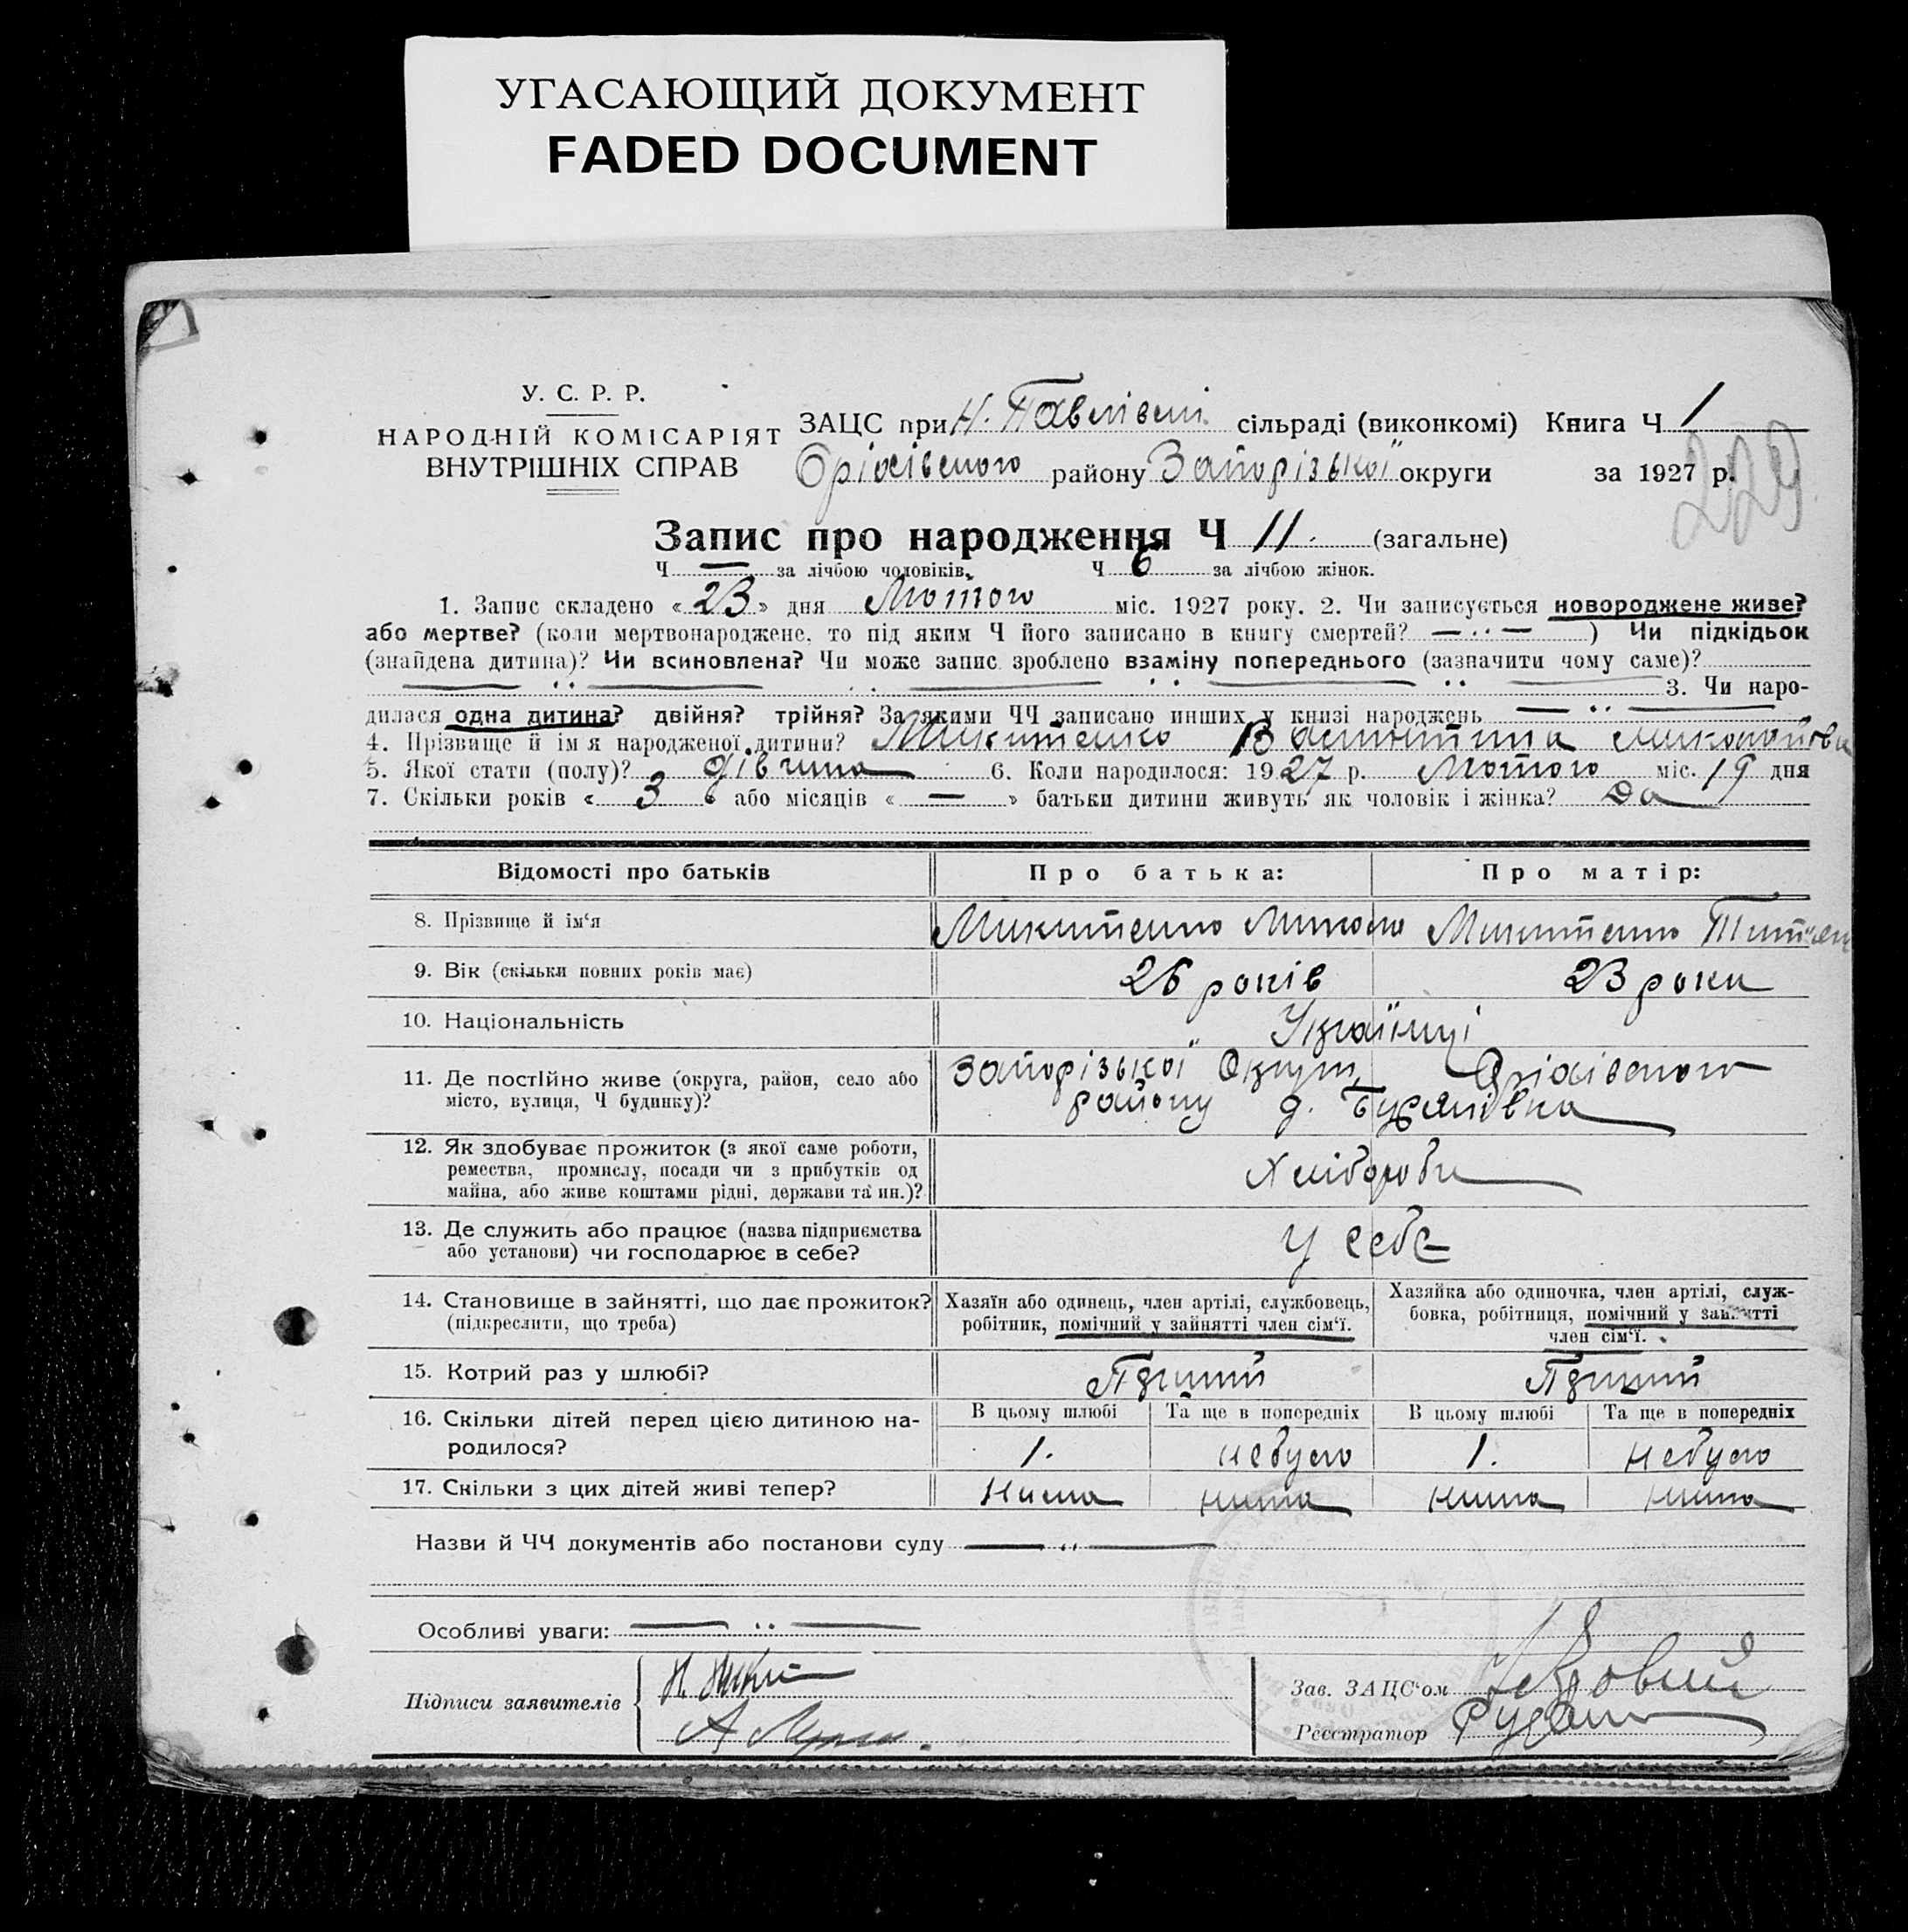 УГАСАЮЩИЙ ДОКУМЕНТ
FADED DOCUMENT
У. С. Р. Р.
НАРОДНІЙ КОМІСАРІЯТ
ВНУТРІШНІХ СПРАВ
ЗАЦС при Н. Павлівкі сільраді (виконкомі) Книга Ч 1
Оріхівского району Запорізької округи за 1927 р.
229
Запис про народження Ч 11. (загальне)
Ч — за лічбою чоловіків. Ч 6 за лічбою жінок.
1. Запис складено « 23 » дня Лютого міс. 1927 року. 2. Чи записується новороджене живе?
або мертве? (коли мертвонароджене, то під яким Ч його записано в книгу смертей? — ·· — ) Чи підкідьок
(знайдена дитина)? Чи всиновлена? Чи може запис зроблено взаміну попереднього (зазначити чому саме)?
3. Чи наро-
дилася одна дитина? двійня? трійня? За якими ЧЧ записано инших у книзі народжень — ·· —
4. Прізвище й імя народженої дитини? Микитенко Валентина Миколаївна
5. Якої стати (полу)? дівчина 6. Коли народилося: 1927 р. Лютого міс. 19 дня
7. Скільки років « 3 » або місяців « — » батьки дитини живуть як чоловік і жінка? Да
Відомості про батьків Про батька: Про матір:
8. Прізвище й ім'я Микитенко Микола Микитенко
9. Вік (скільки повних років має) 26 років 23 роки
10. Національність Українці
11. Де постійно живе (округа, район, село або Запорізької Округи, Оріхівского
місто, вулиця, Ч будинку)? району
12. Як здобуває прожиток (з якої саме роботи,
ремества, промислу, посади чи з прибутків од Хлібороби
майна, або живе коштами рідні, держави та ин.)?
13. Де служить або працює (назва підприємства
або установи) чи господарює в себе? У себе
14. Становище в зайнятті, що дає прожиток? Хазяїн або одинець, член артілі, службовець, Хазяйка або одиночка, член артілі, служ-
(підкреслити, що треба) робітник, помічний у зайнятті член сім'ї. бовка, робітниця, помічний у зайнятті
член сім'ї.
15. Котрий раз у шлюбі? Перший Перший
16. Скільки дітей перед цією дитиною на- В цьому шлюбі Та ще в попередніх В цьому шлюбі Та ще в попередніх
родилося? 1. небуло 1. небуло
17. Скільки з цих дітей живі тепер? Нима нима нима нима
Назви й ЧЧ документів або постанови суду — ·· —
Особливі уваги: — ·· —
Підписи заявителів
Зав. ЗАЦС'ом
Реєстратор